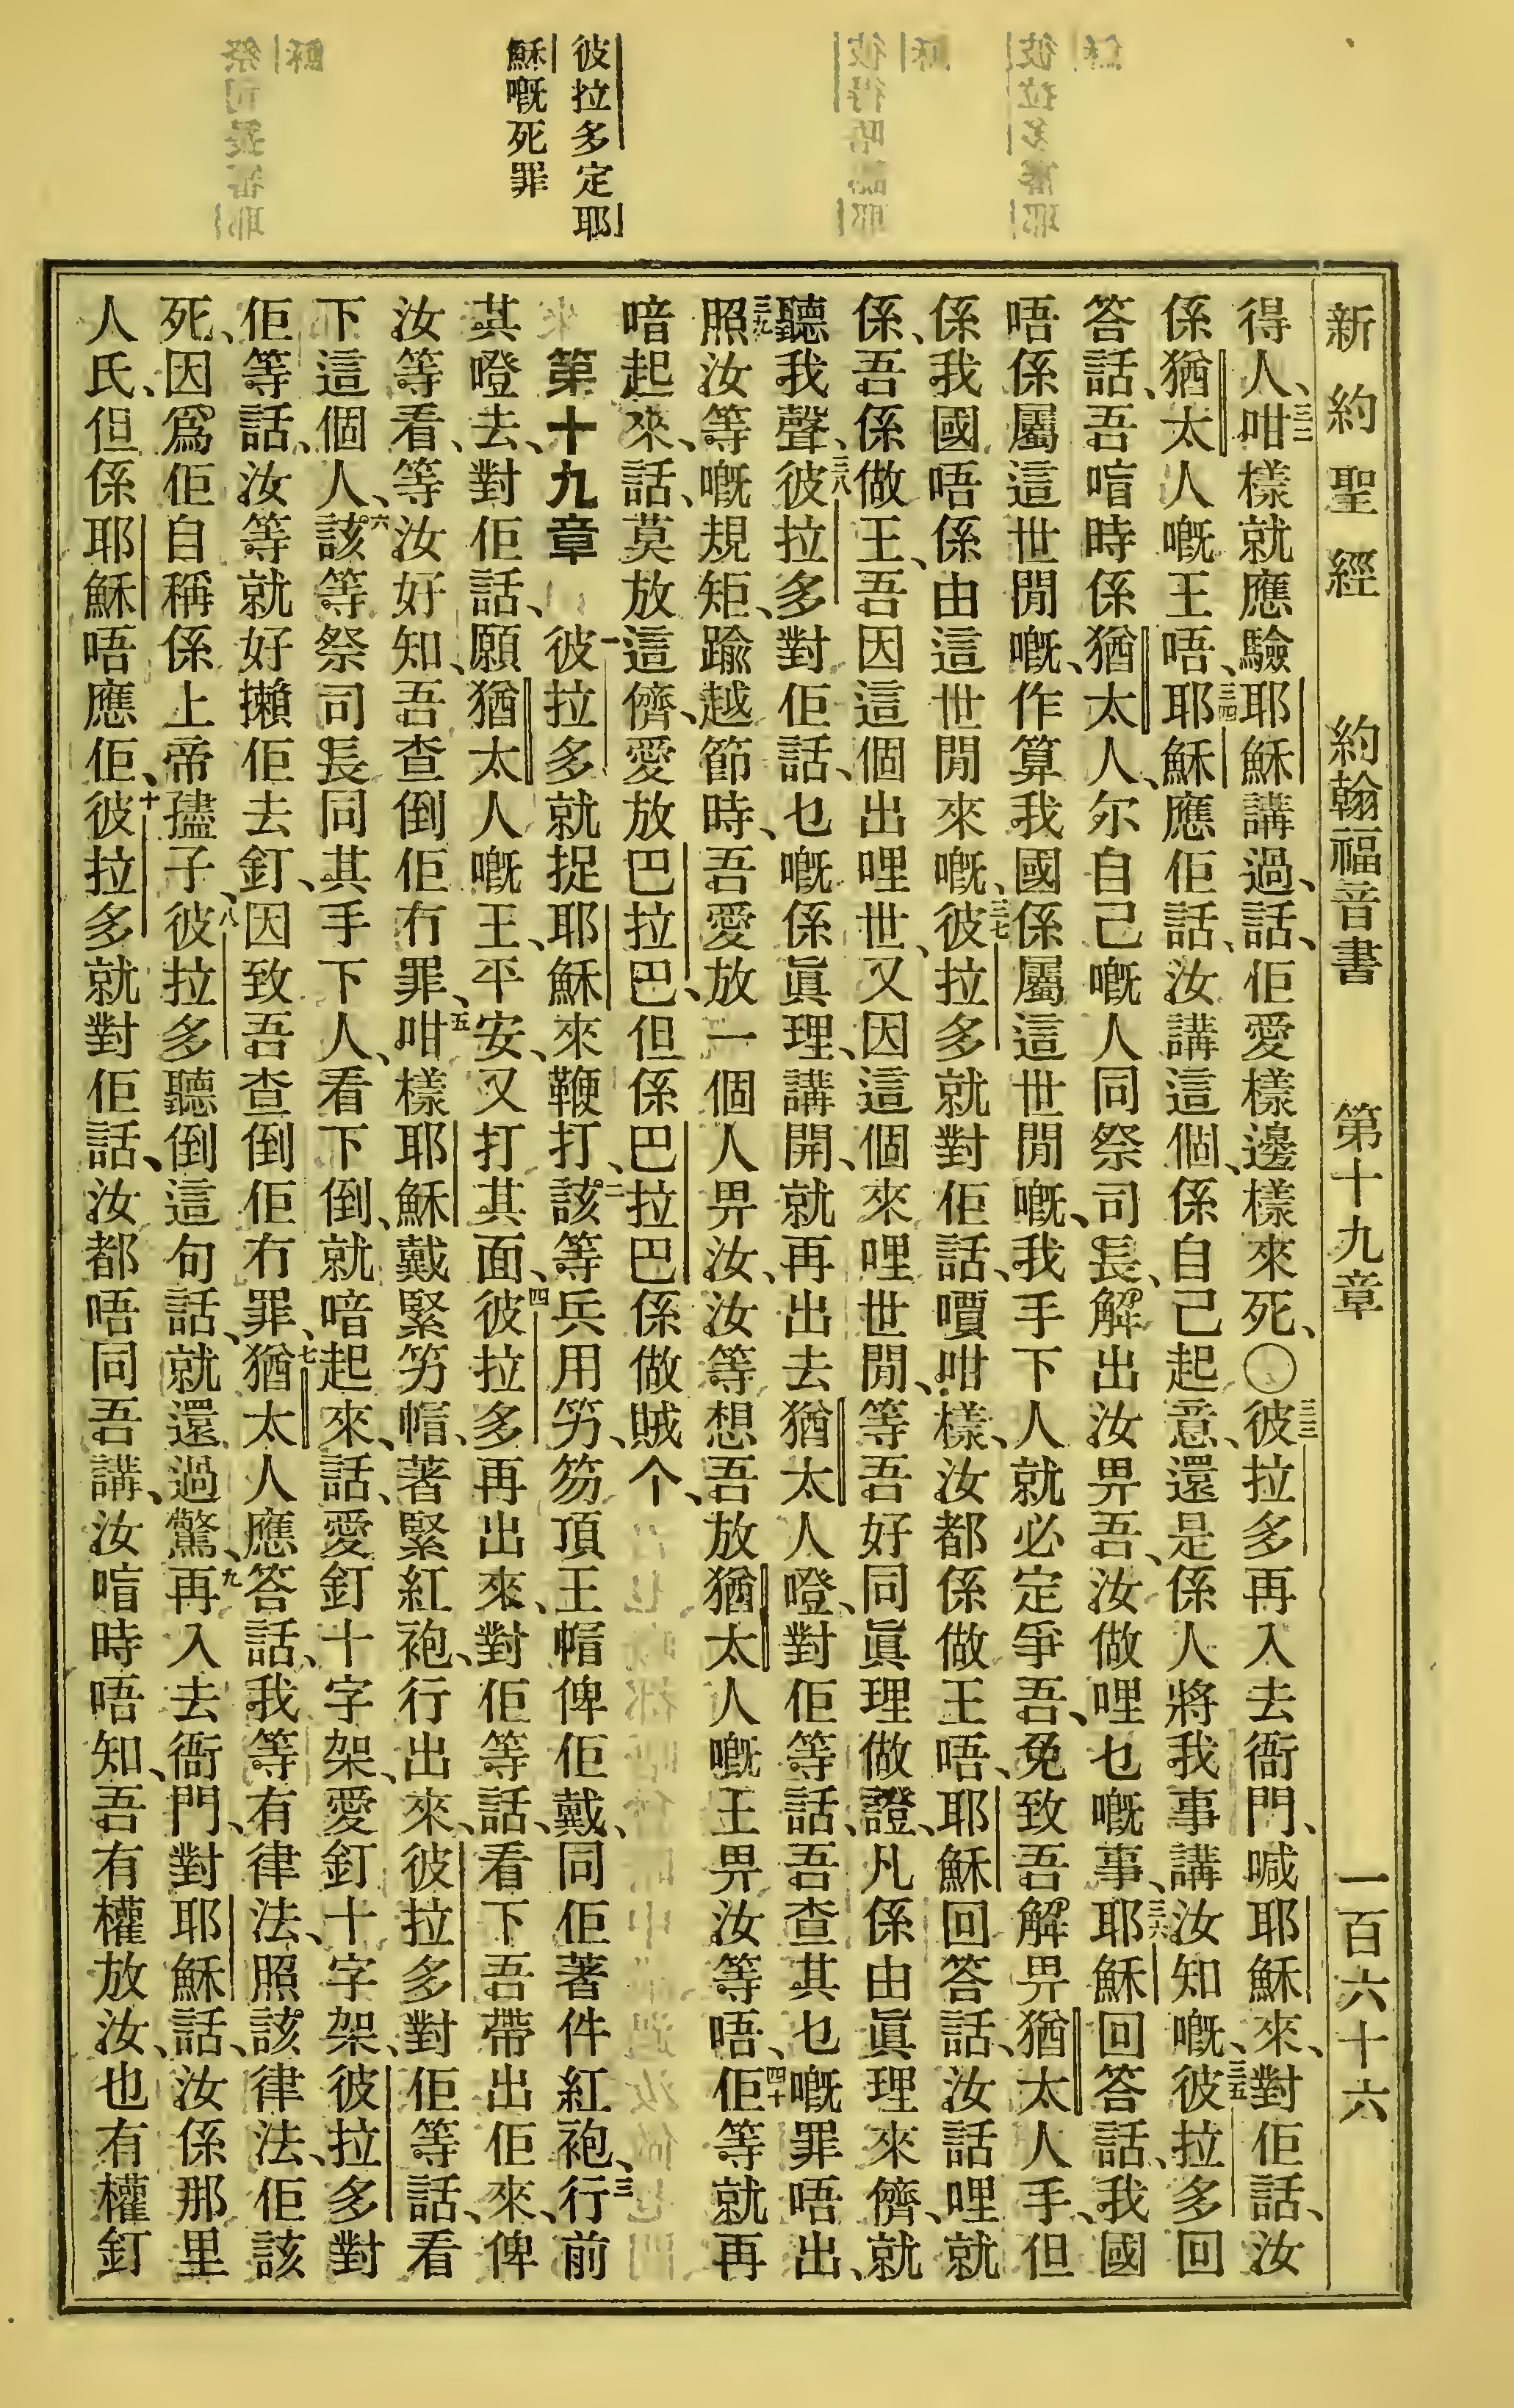 新約聖經 約翰福音書 第十九章 一百六十六
得人、三二咁樣就應驗耶穌講過、話、佢愛樣邊樣來死、〇三三彼拉多再入去衙門、喊耶穌來、對佢話、汝
係猶太人嘅王唔、三四耶穌應佢話、汝講這個、係自己起意、還是係人將我事講汝知嘅、三五彼拉多回
答話、吾喑時係猶太人、尔自己嘅人同祭司長、解出汝畀吾、汝做哩乜嘅事、三六耶穌回答話、我國
唔係屬這世間嘅、作算我國係屬這世間嘅、我手下人就必定爭吾、免致吾解畀猶太人手、但
係我國唔係由這世間來嘅、三七彼拉多就對佢話、嘪咁樣、汝都係做王唔、耶穌回答話、汝話哩就
係、吾係做王、吾因這個出哩世、又因這個來哩世間、等吾好同眞理做證、凡係由眞理來儕、就
聽我聲、三八彼拉多對佢話、乜嘅係眞理、講開、就再出去猶太人嶝、對佢等話、吾查其乜嘅罪唔出、
三九照汝等嘅規矩、踰越節時、吾愛放一個人畀汝、汝等想吾放猶太人嘅王畀汝等唔、四十佢等就再
喑起來、話、莫放這儕、愛放巴拉巴、但係巴拉巴係做賊个、
彼拉多定耶
穌嘅死罪
第十九章 一彼拉多就捉耶穌來鞭打、二該等兵用竻笏頂王帽俾佢戴、同佢著件紅袍、三行前
其嶝去、對佢話、願猶太人嘅王、平安、又打其面、四彼拉多再出來、對佢等話、看下吾帶出佢來、俾
汝等看、等汝好知、吾查倒佢冇罪、五咁樣耶穌戴緊竻帽、著緊紅袍、行出來、彼拉多對佢等話、看
下這個人、六該等祭司長同其手下人、看下倒、就喑起來、話、愛釘十字架、愛釘十字架、彼拉多對
佢等話、汝等就好攋佢去釘、因致吾查倒佢冇罪、七猶太人應答話、我等有律法、照該律法、佢該
死、因爲佢自稱係上帝孻子、八彼拉多聽倒這句話、就還過驚、九再入去衙門、對耶穌話、汝係那里
人氏、但係耶穌唔應佢、十彼拉多就對佢話、汝都唔同吾講、汝喑時唔知、吾有權放汝、也有權釘